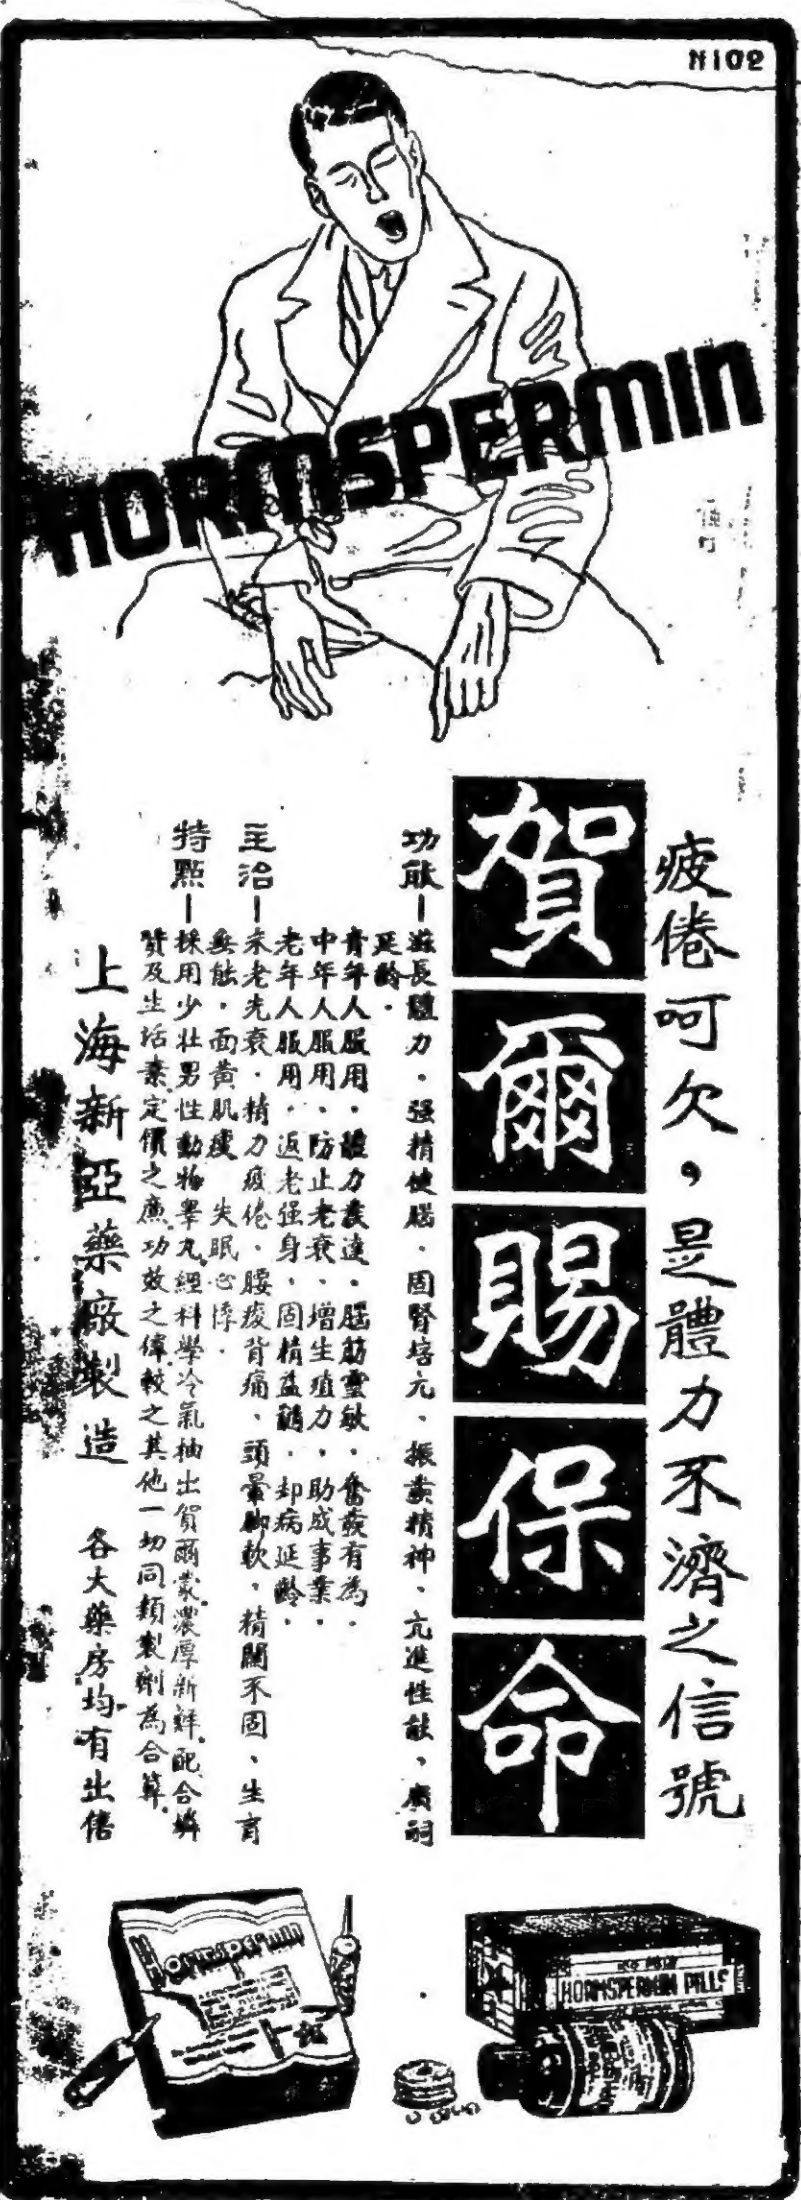 N102
HORMSPERMIN
疲倦呵欠，是體力不濟之信號
賀爾賜保命
功能—滋長體力．强精健腦．固腎培元、振奮精神、亢進性能、廣嗣
延齡．
青年人服用．體力發達．腦筋靈敏．奮發有為．
中年人服用、防止老衰、增生殖力，助成事業．
老年人服用．返老强身，固精益髓．却病延齡．
主治—未老先衰．精力疲倦、腰痠背痛、頭暈脚軟，精關不固、生育
無能，面黃肌瘦 失眠心悸．
特點—採用少壯男性動物睪丸經科學冷氣抽出賀爾蒙濃厚新鮮配合燐
質及生活素定價之廉功效之偉較之其他一切同類製劑為合算
上海新亞藥廠製造 各大藥房均有出售
Hormspermin
HORMSPERMIN PILLS